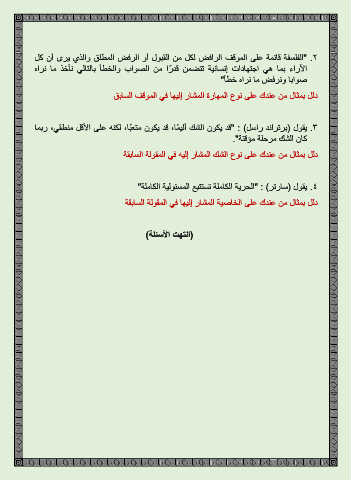 ٢. "الفلسفة قائمة على الموقف الرافض لكل من القبول أو الرفض المطلق والذي يرى أن كل
الآراء بما هي اجتهادات إنسانية تتضمن قدرًا من الصواب والخطأ بالتالي نأخذ ما نراه
صوابا ونرفض ما نراه خطأ"
دلل بمثال من عندك على نوع المهارة المشار إليها في الموقف السابق
٣. يقول (برتراند راسل) : "قد يكون الشك أليمًا، قد يكون متعبًا، لكنه على الأقل منطقي، ربما
كان الشك مرحلة مؤقتة".
دلل بمثال من عندك على نوع الشك المشار إليه في المقولة السابقة
٤. يقول (سارتر) : "الحرية الكاملة تستتبع المسئولية الكاملة"
دلل بمثال من عندك على الخاصية المشار إليها في المقولة السابقة
(انتهت الأسئلة)